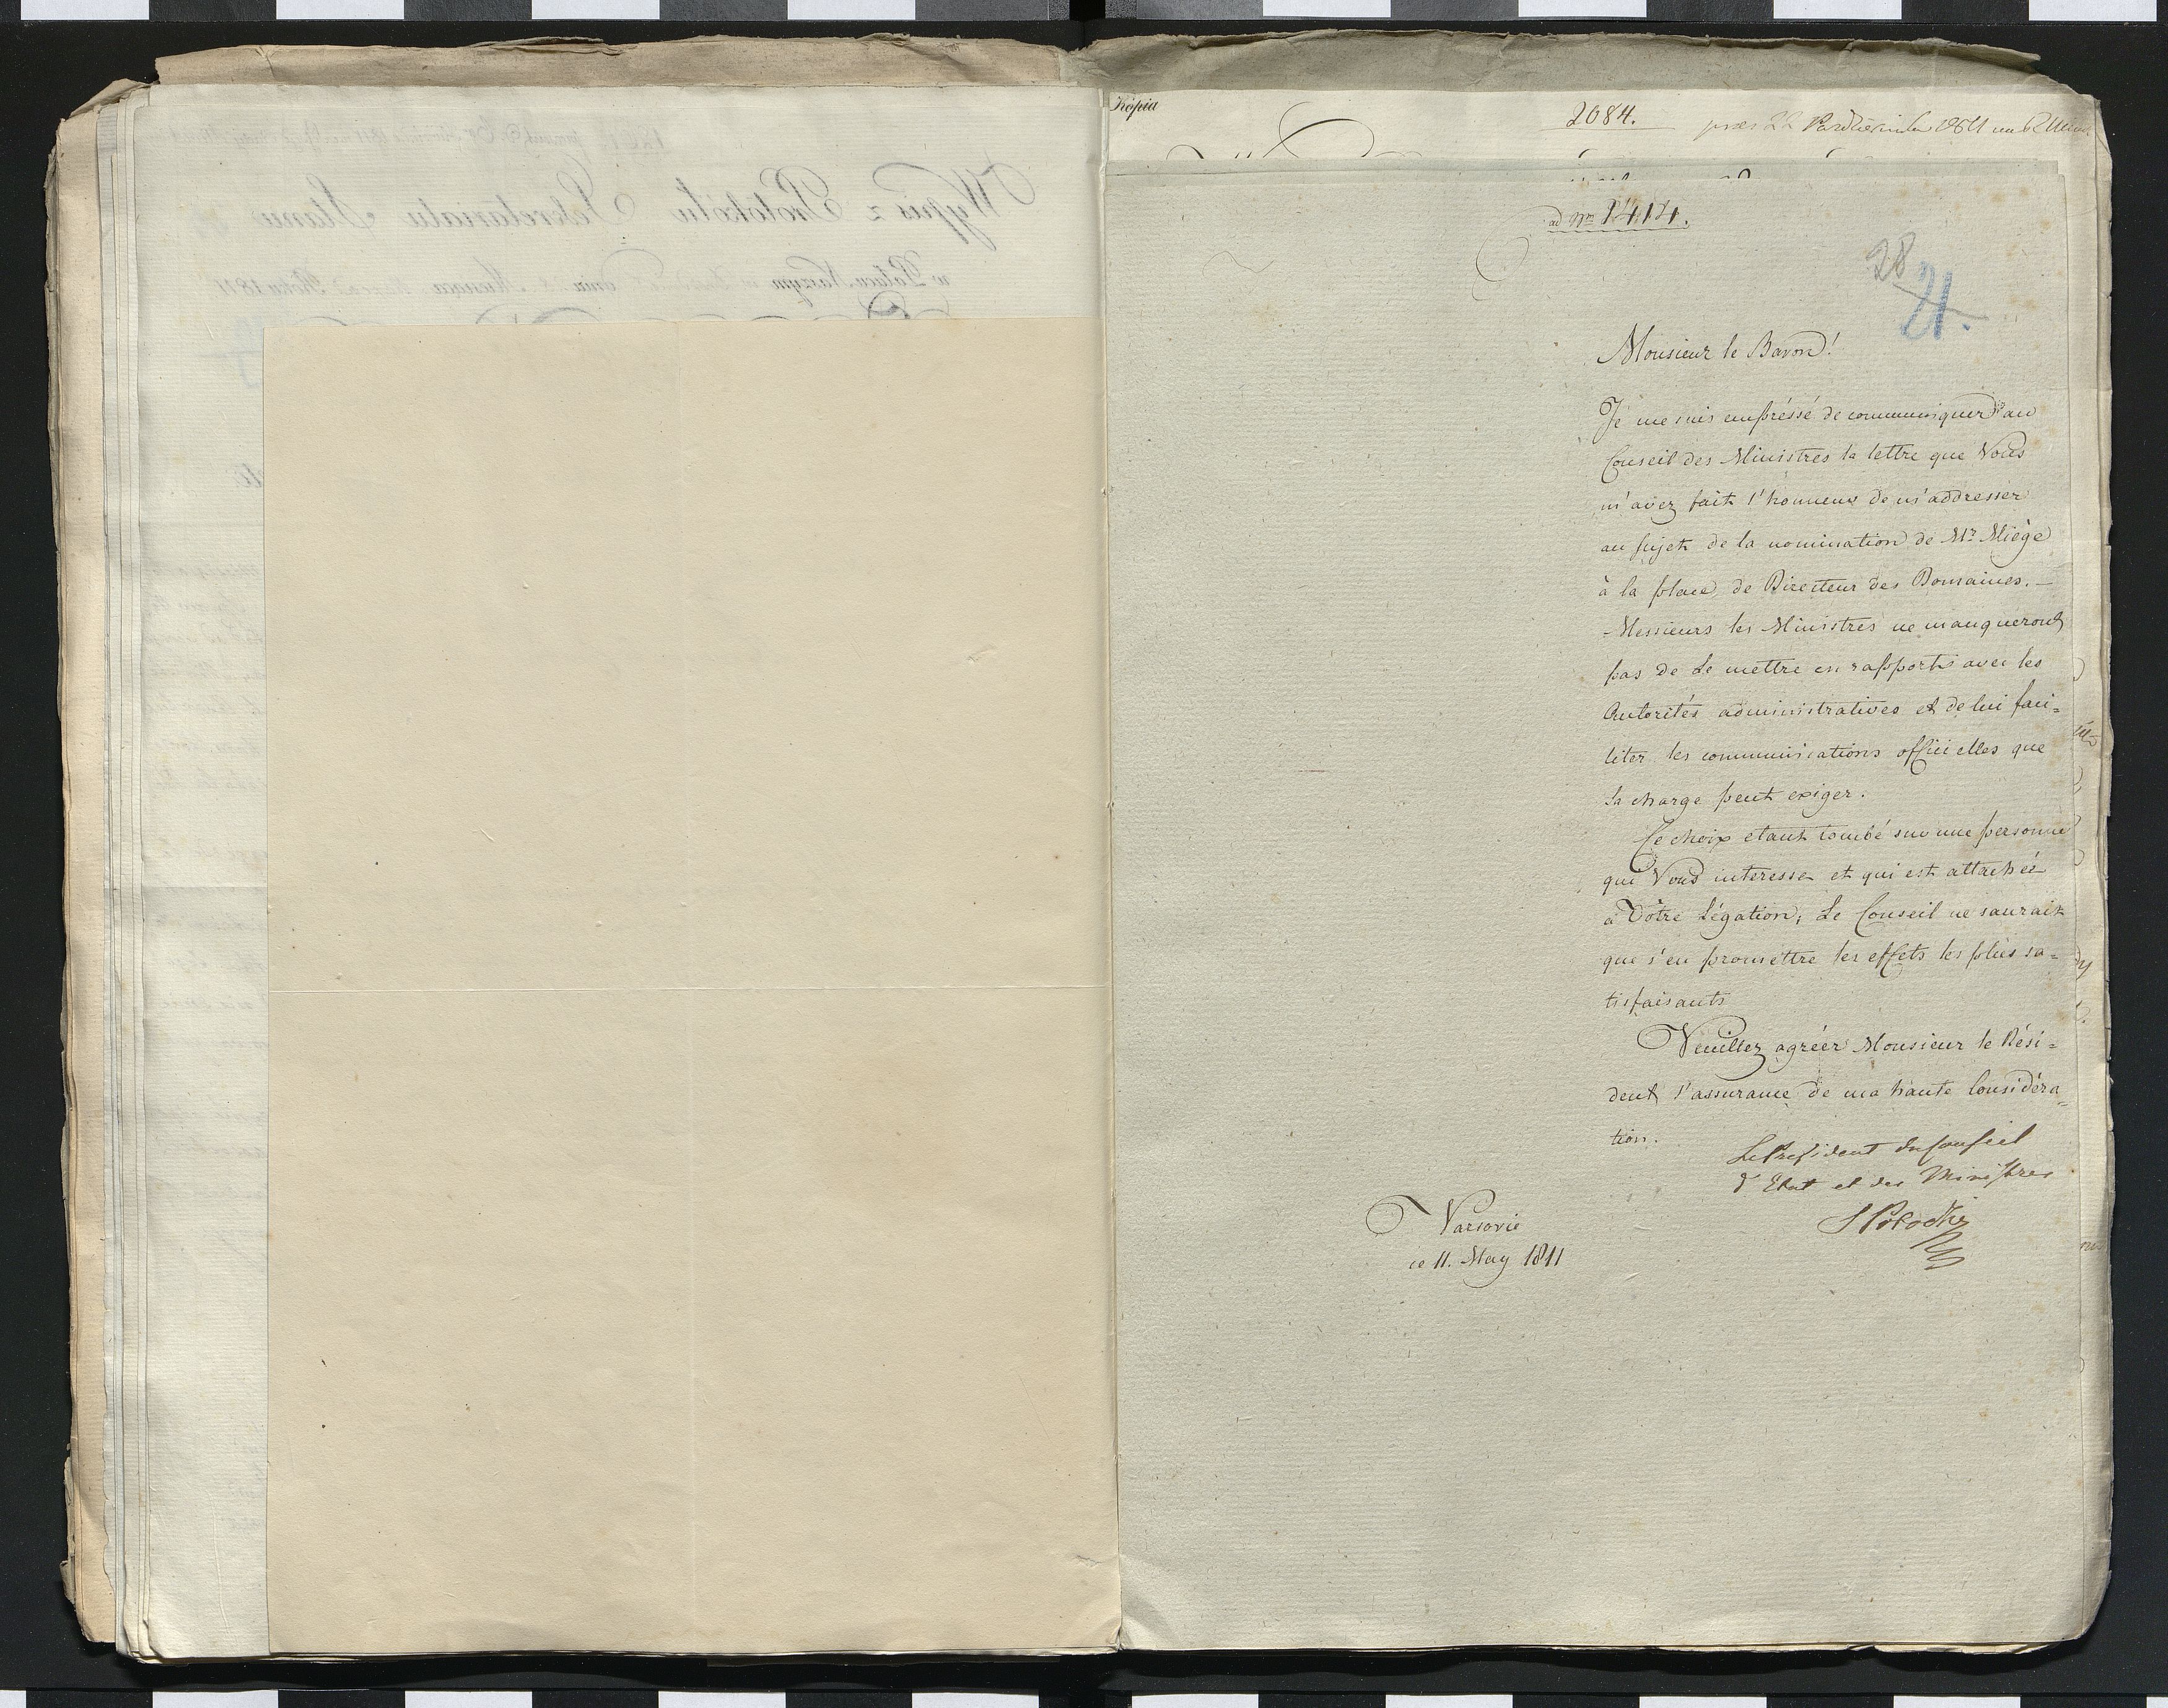 Kopia
2084.
ad Nrm 1414.
28
21.
Monsieur le Baron!
Je me suis empréssé de communiquer au
Conseil des Ministres la lettre que Vous
m'avez fait l'honneur de m'addresser
au sujet de la nomination de Mr. Miège
à la place de Directeur des Domaines. —
Messieurs les Ministres ne manqueront
pas de Le mettre en rapports avec les
Autorités administratives et de lui faci=
liter les communications officielles que
Sa charge peut exiger.
Ce choix etant tombé sur une personne
qui Vous interesse et qui est attachée
à Vôtre Légation; Le Conseil ne saurait
que s'en promettre les effets les plus sa=
tisfaisants
Veuillez agréer Monsieur le Rési=
dent l'assurance de ma haute Considéra=
tion.
Le President du Conseil
d'Etat et des Ministres
S Potocki
Varsovie
ce 11. May 1811
Wypis z Protokółu Sekretariatu Stanu